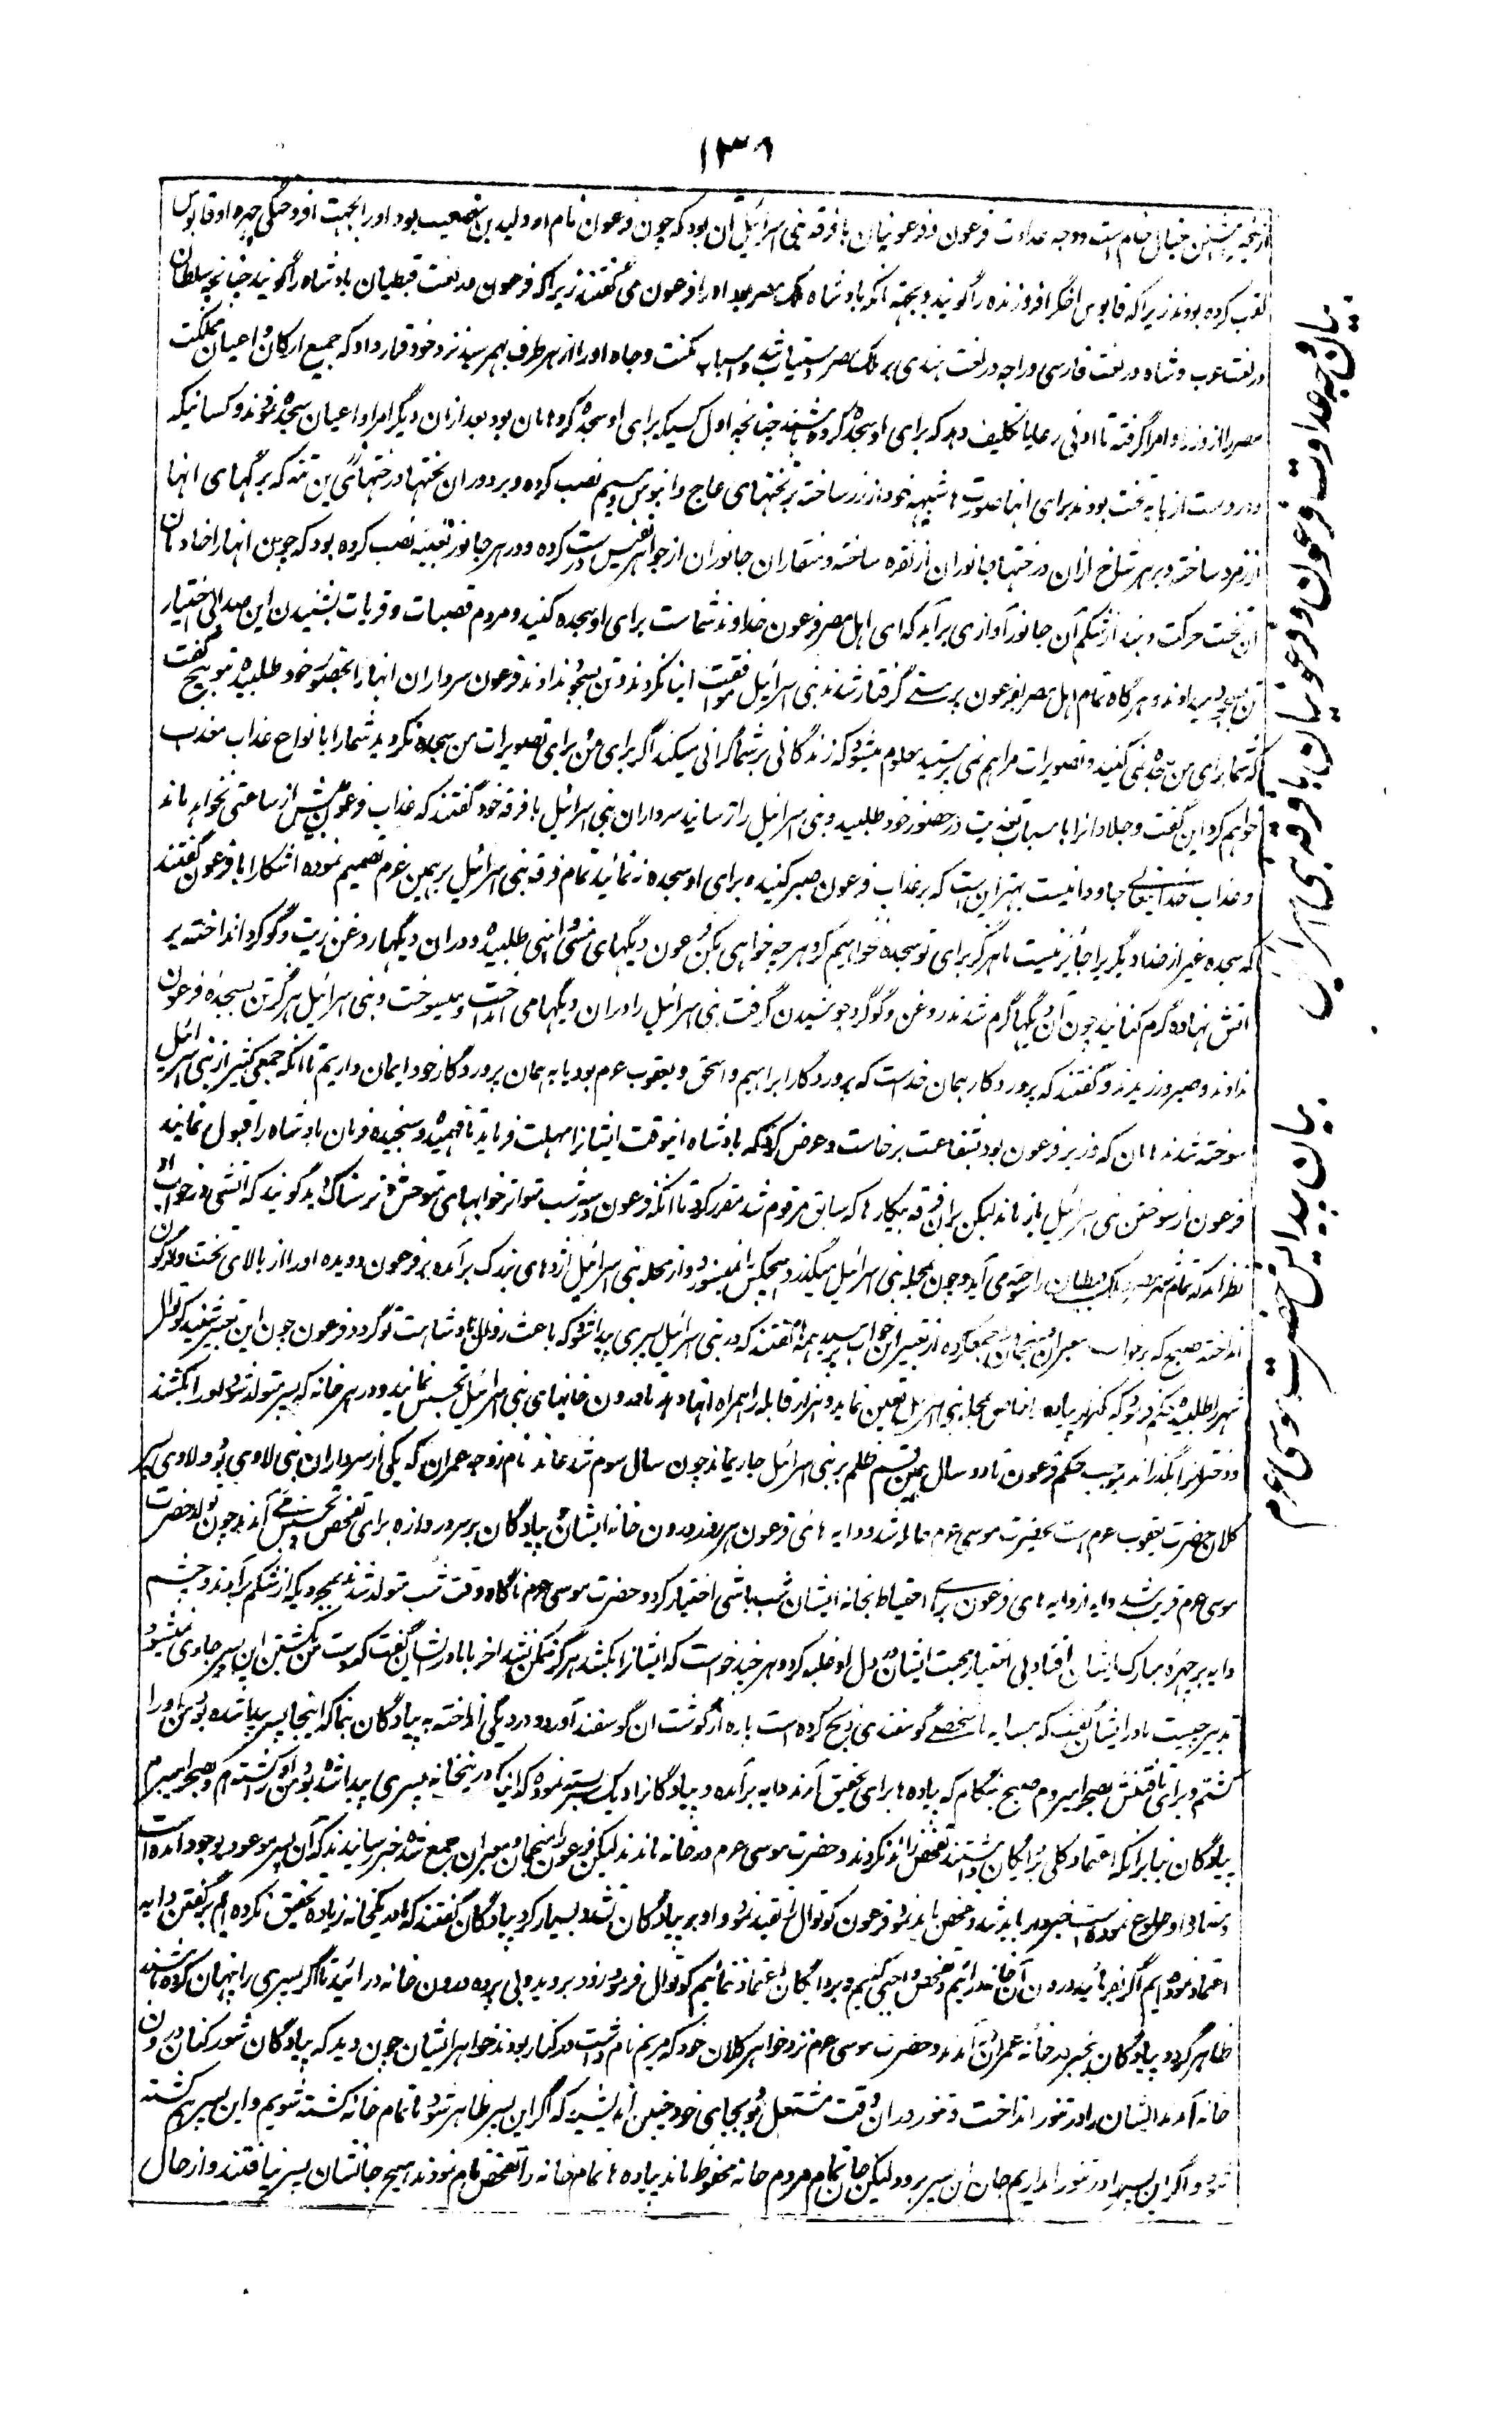 ۱۳۹
از نتیجه همین خیال خام است و وجه عداوت فرعون و فرعونیان با فرقه بنی اسرائیل آن بود که چون فرعون نام او ولید بن مصعب بود او را بجهت افروختگی چهره او قابوس
لقب کرده بودند زیرا که قابوس اخگر افروزنده را گویند و بجهة آنکه بادشاه ملک مصر بود او را فرعون می گفتند زیرا که فرعون در لغت قبطیان بادشاه را گویند چنانچه سلطان
در لغت عرب و شاه در لغت فارسی و راجه در لغت هندی بر ملک مصر دستیاب شد و اسباب مکنت و جاه او را از هر طرف بهم رسید نزد خود قرار داد که جمیع ارکان و اعیان مملکت
مصر را از وزرا و امرا گرفته تا ادنی رعایا تکلیف دهد که برای او سجده کرده باشند چنانچه اول کسیکه برای او سجده کرد هامان بود بعد ازان دیگر امرا و اعیان سجده نمودند و کسانیکه
دور دست از پایه تخت بودند برای انها صورت ها شبیه خود از زر ساخته بر تختهای عاج و ابنوس و سیم نصب کرده و بر دوران تختها درختهای زرین تنه که برگهای انها
از زمرد ساخته و بر هر شاخ ازان درختها جانوران از نقره ساخته و منقاران جانوران از جواهر نفیس درست کرده و در هر جانور تعبیه نصب کرده بود که چون انها را خادمان
آن تخت حرکت دهند از شکم آن جانور آوازی برآید که ای اهل مصر فرعون خداوند شماست برای او سجده کنید و مردم قصبات و قریات بشنیدن این صدا بی اختیار
تن بسجود میدادند و هرگاه تمام اهل مصر بفرعون پرستی گرفتار شدند بنی اسرائیل موافقت اینها نکردند و تن بسجود ندادند فرعون سرداران انها را بحضور خود طلبیده بتوبیخ گفت
که شما برای من سجده نمی کنید و تصویرات مرا هم نمی پرستید معلوم میشود که زندگانی بر شما گرانی میکند اگر برای من و برای تصویرات من سجده نکردید شما را بانواع عذاب معذب
خواهم کرد این گفت و جلادان را با اسباب تعذیب در حضور خود طلبید و بنی اسرائیل را ترسانید سرداران بنی اسرائیل با فرقه خود گفتند که عذاب فرعون بیش از ساعتی نخواهد ماند
و عذاب خدا تعالی جاودانیست بهتر این است که بر عذاب فرعون صبر کنید و برای او سجده نه نمائید تمام فرقه بنی اسرائیل بر همین عزم تصمیم نموده آشکارا با فرعون گفتند
که سجده غیر از خدا دیگریرا جائز نیست ما هرگز برای تو سجده نخواهیم کرد هر چه خواهی بکن فرعون دیگهای مسی و آهنی طلبیده و دران دیگها روغن زیت و گوگرد انداخته بر
اتش نهاده گرم کنانید چون آن دیگها گرم شدند روغن و گوگرد جوشیدن گرفت بنی اسرائیل را دران دیگها می انداخت و میسوخت و بنی اسرائیل هرگز تن بسجده فرعون
ندادند و صبر ورزیدند و گفتند که پروردگار ما همان خداست که پروردگار ابراهیم و اسحق و یعقوب عم بود ما به همان پروردگار خود ایمان داریم تا آنکه جمعی کثیر از بنی اسرائیل
سوخته شدند هامان که وزیر فرعون بود بشفاعت برخاست و عرض کرد که بادشاه اینوقت ایشانرا مهلت فرماید تا فهمیده و سنجیده فرمان بادشاه را قبول نمایند
فرعون از سوختن بنی اسرائیل باز ماند لیکن بران فرقه بیگار ها که سابق مرقوم شد مقرر کرد تا آنکه فرعون در سه شب متواتر خوابهای متوحش و ترسناک دید گویند که آتشی در خواب او
نظر آمد که تمام شهر مصر و ملک قبطیان را سوخته می آید و چون بمحله بنی اسرائیل میگذرد هیچکس را نمیسوزد و از محله بنی اسرائیل اژدهای بزرگ برآمده بر فرعون دویده او را از بالای تخت واژگون
انداخته صبح که برخواست معبران و منجمان را جمع کرده از تعبیر این خواب پرسید همه گفتند که در بنی اسرائیل پسری پیدا شود که باعث زوال بادشاهت تو گردد فرعون چون این تعبیر شنید کوتوال
شهر را طلبیده حکم فرمود که یکهزار پیاده بمحله بنی اسرائیل تعین نماید و هزار قابله را همراه انها دهد تا درون خانهای بنی اسرائیل تجسس نمایند و در هر خانه که پسر متولد شود او را بکشند
و دختر را بگذراند بموجب حکم فرعون تا دو سال همین قسم ظلم بر بنی اسرائیل جاری ماند چون سال سوم شد نام زوجه عمران که یکی از سرداران بنی لاوی بود و لاوی پسر
کلان حضرت یعقوب عم است بحضرت موسی عم حامله شد و دایه های فرعون هر روز درون خانه ایشان و پیادگان بر سر دروازه برای تفحص و تجسس می آمدند چون تولد حضرت
موسی عم قریب شد دایه از دایه های فرعون برای احتیاط بخانه ایشان شب باشی اختیار کرد و حضرت موسی عم ناگاه وقت شب متولد شدند بمجردیکه از شکم برآمدند و چشم
دایه بر چهره مبارک ایشان افتاد بی اختیار محبت ایشان در دل او غلبه کرد و هر چند خواست که ایشانرا بکشد هرگز ممکن نشد اخر با مادر ایشان گفت که دست من بکشتن این پسر جاری نمیشود
تدبیر چیست مادر ایشان گفت که همسایه ما شخصی گوسفندی ذبح کرده است پاره از گوشت ان گوسفند آورده و در دیگی انداخته به پیادگان بنما که اینجا پسر پیدا شده بود من او را
کشتم و برای یافتنش بصحرا میروم صبح هنگام که پیاده ها برای تحقیق آمدند دایه برآمده و پیادگانرا دیگ سربسته نمود که اینک در ینخانه پسری پیدا شده بود من او را کشته ام و بصحرا میبرم
پیادگان بنابر آنکه اعتماد کلی بر دایگان داشتند تفحص زائد نکردند و حضرت موسی عم در خانه ماندند لیکن فرعون را منجمان و معبران جمع شده خبر رسانیدند که آن پسر موعود بوجود آمده است
و ستاره او طلوع نموده است خبردار باید شد و تفحص باید نمود فرعون کوتوال را تقید نمود و او بر پیادگان تشدد بسیار کرد پیادگان گفتند که ما در یکخانه زیاده تحقیق نکرده ایم بر گفتن دایه
اعتماد نموده ایم اگر بفرمائید درون آن خانه در آئیم و تفحص واجبی کنیم و بر دایگان اعتماد ننمائیم کوتوال فرمود زود بروید و بی پرده درون خانه در آئید تا اگر پسری را پنهان کرده باشند
ظاهر گردد پیادگان بیخبر در خانه عمران آمدند و حضرت موسی عم نزد خواهر کلان خود که مریم نام داشت در کنار بودند خواهر ایشان چون دید که پیادگان شور کنان درون
خانه آمدند ایشان را در تنور انداخت و تنور دران وقت مشتعل بود بجای خود چنین اندیشید که اگر این پسر ظاهر شود تا تمام خانه کشته شویم و این پسر هم کشته
شود و اگر این پسر را در تنور اندازیم جان این پسر برود لیکن جان تمام مردم خانه محفوظ ماند پیاده ها تمام خانه را تفحص تام نمودند هیچ جا نشان پسر نیافتند و از حال
بیان وجه عداوت فرعون و فرعونیان با فرقه بنی اسرائیل
بیان پیدایش حضرت موسی عم